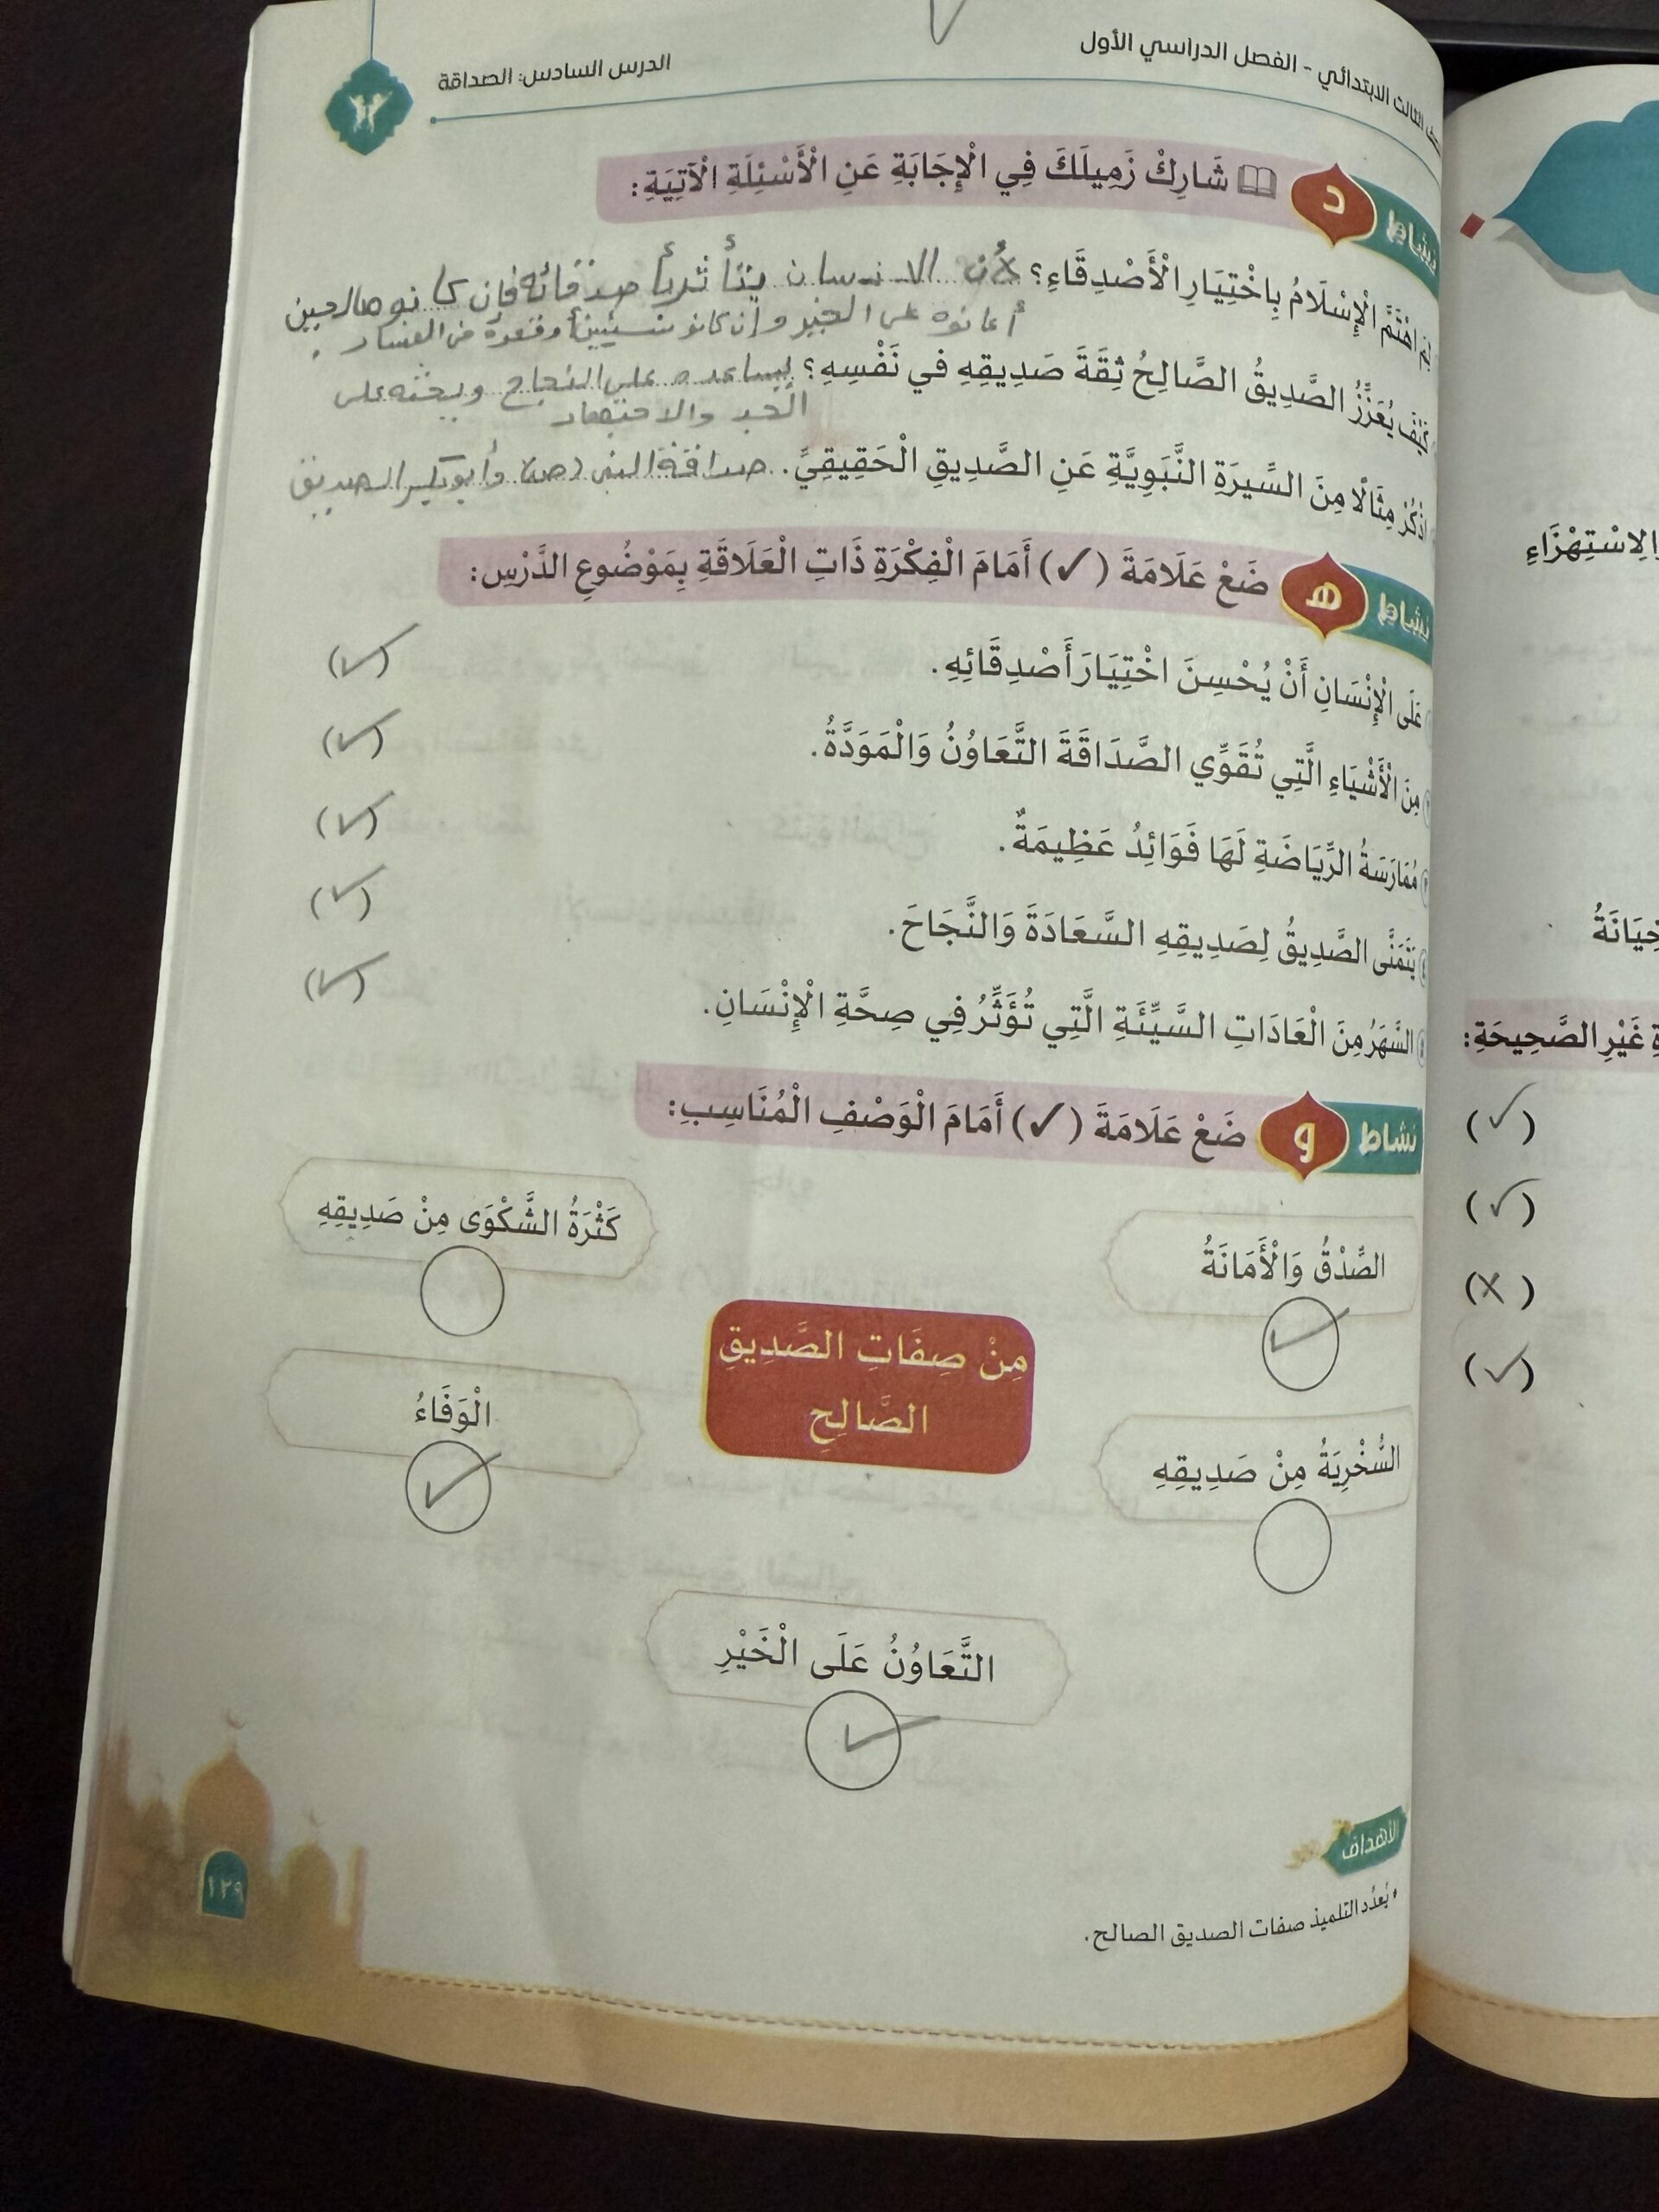 الثالث الابتدائي - الفصل الدراسي الأول
الدرس السادس: الصداقة
نشاط د شَارِكْ زَمِيلَكَ فِي الْإِجَابَةِ عَنِ الْأَسْئِلَةِ الْآتِيَةِ:
لِمَ اهْتَمَّ الْإِسْلَامُ بِاخْتِيَارِ الْأَصْدِقَاءِ؟ لأن الانسان يتأثر بأصدقائه فإن كانو صالحين
أعانوه على الخير وإن كانو سيئين أوقعوه في الفساد.
كَيْفَ يُعَزِّزُ الصَّدِيقُ الصَّالِحُ ثِقَةَ صَدِيقِهِ في نَفْسِهِ؟ يساعده على النجاح ويحثه على
الجد والاجتهاد
اذْكُرْ مِثَالًا مِنَ السِّيرَةِ النَّبَوِيَّةِ عَنِ الصَّدِيقِ الْحَقِيقِيِّ. صداقة النبى (ص) وأبو بكر الصديق
نشاط هـ ضَعْ عَلَامَةَ (✓) أَمَامَ الْفِكْرَةِ ذَاتِ الْعَلَاقَةِ بِمَوْضُوعِ الدَّرْسِ:
عَلَى الْإِنْسَانِ أَنْ يُحْسِنَ اخْتِيَارَ أَصْدِقَائِهِ. (✓)
مِنَ الْأَشْيَاءِ الَّتِي تُقَوِّي الصَّدَاقَةَ التَّعَاوُنُ وَالْمَوَدَّةُ. (✓)
مُمَارَسَةُ الرِّيَاضَةِ لَهَا فَوَائِدُ عَظِيمَةٌ. (✓)
يَتَمَنَّى الصَّدِيقُ لِصَدِيقِهِ السَّعَادَةَ وَالنَّجَاحَ. (✓)
السَّهَرُ مِنَ الْعَادَاتِ السَّيِّئَةِ الَّتِي تُؤَثِّرُ فِي صِحَّةِ الْإِنْسَانِ. (✓)
نشاط و ضَعْ عَلَامَةَ (✓) أَمَامَ الْوَصْفِ الْمُنَاسِبِ:
الصِّدْقُ وَالْأَمَانَةُ ✓
كَثْرَةُ الشَّكْوَى مِنْ صَدِيقِهِ
مِنْ صِفَاتِ الصَّدِيقِ
الصَّالِحِ
السُّخْرِيَةُ مِنْ صَدِيقِهِ
الْوَفَاءُ ✓
التَّعَاوُنُ عَلَى الْخَيْرِ ✓
الأهداف
• يُعدِّد التلميذ صفات الصديق الصالح.
١٢٩
الِاسْتِهْزَاءِ
غَيْرِ الصَّحِيحَةِ:
(✓)
(✓)
(x)
(✓)